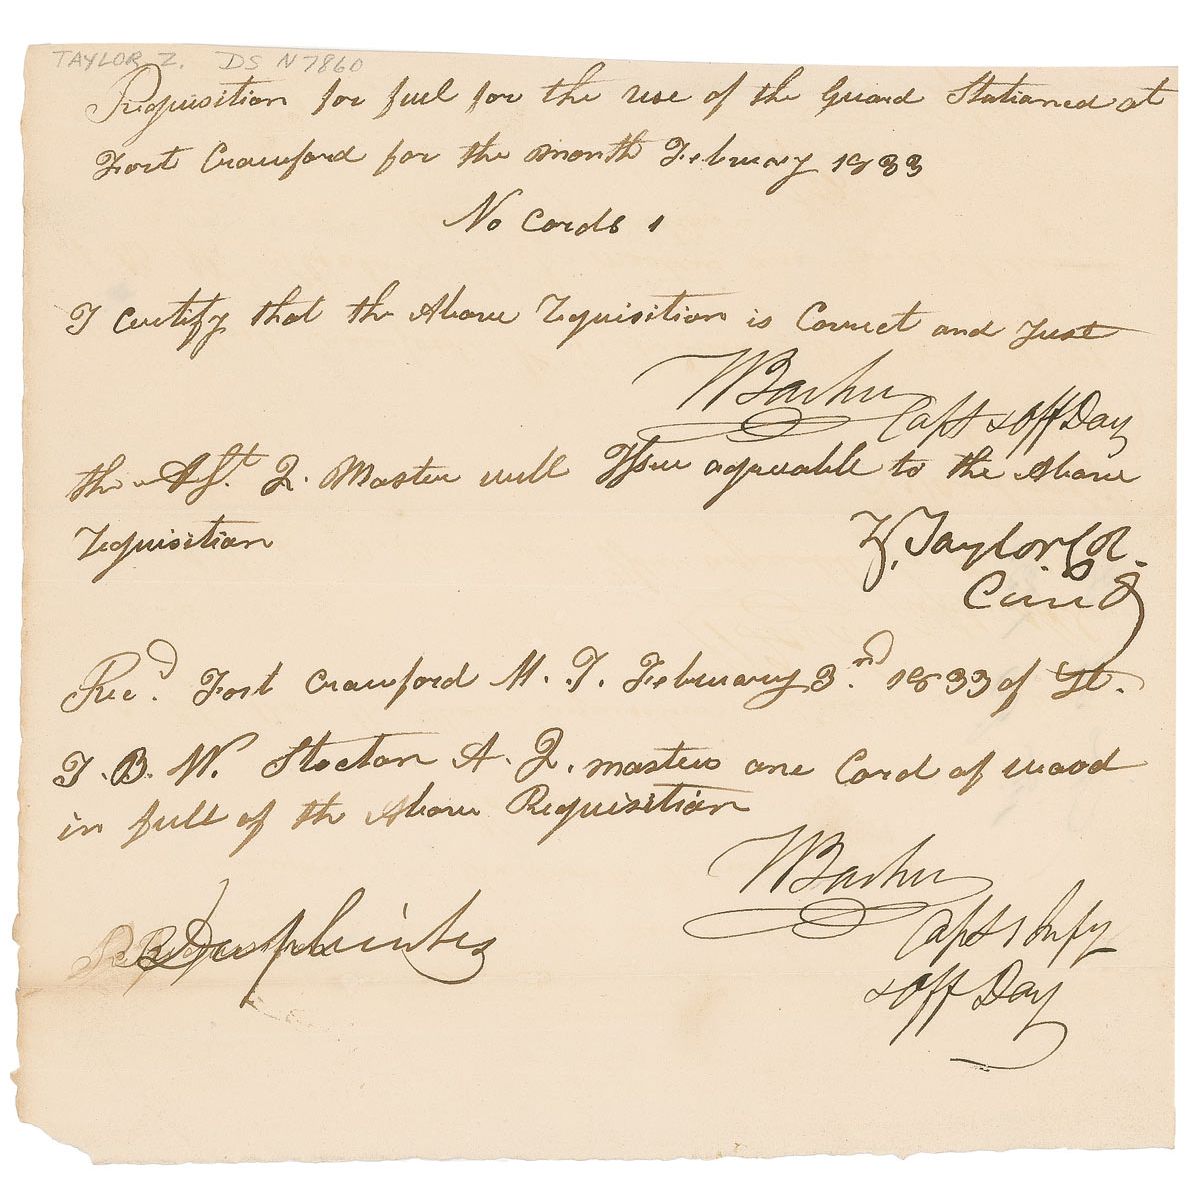 TAYLOR Z. DS N7860
Requisition for fuel for the use of the Guard Stationed at
Fort Crawford for the month February 1833
No Cords 1
I certify that the Above Requisition is Correct and Just
Capt & Off Day
the Asst. Q. Master will Issue agreeable to the Above
Requisition
Z. Taylor Col.
Recd. Fort Crawford M. T. February 3rd. 1833 of Lt.
T. B. W. Stocton A. Q. masters one Cord of wood
in full of the Above Requisition
Capt 1 Infy
& Off Day